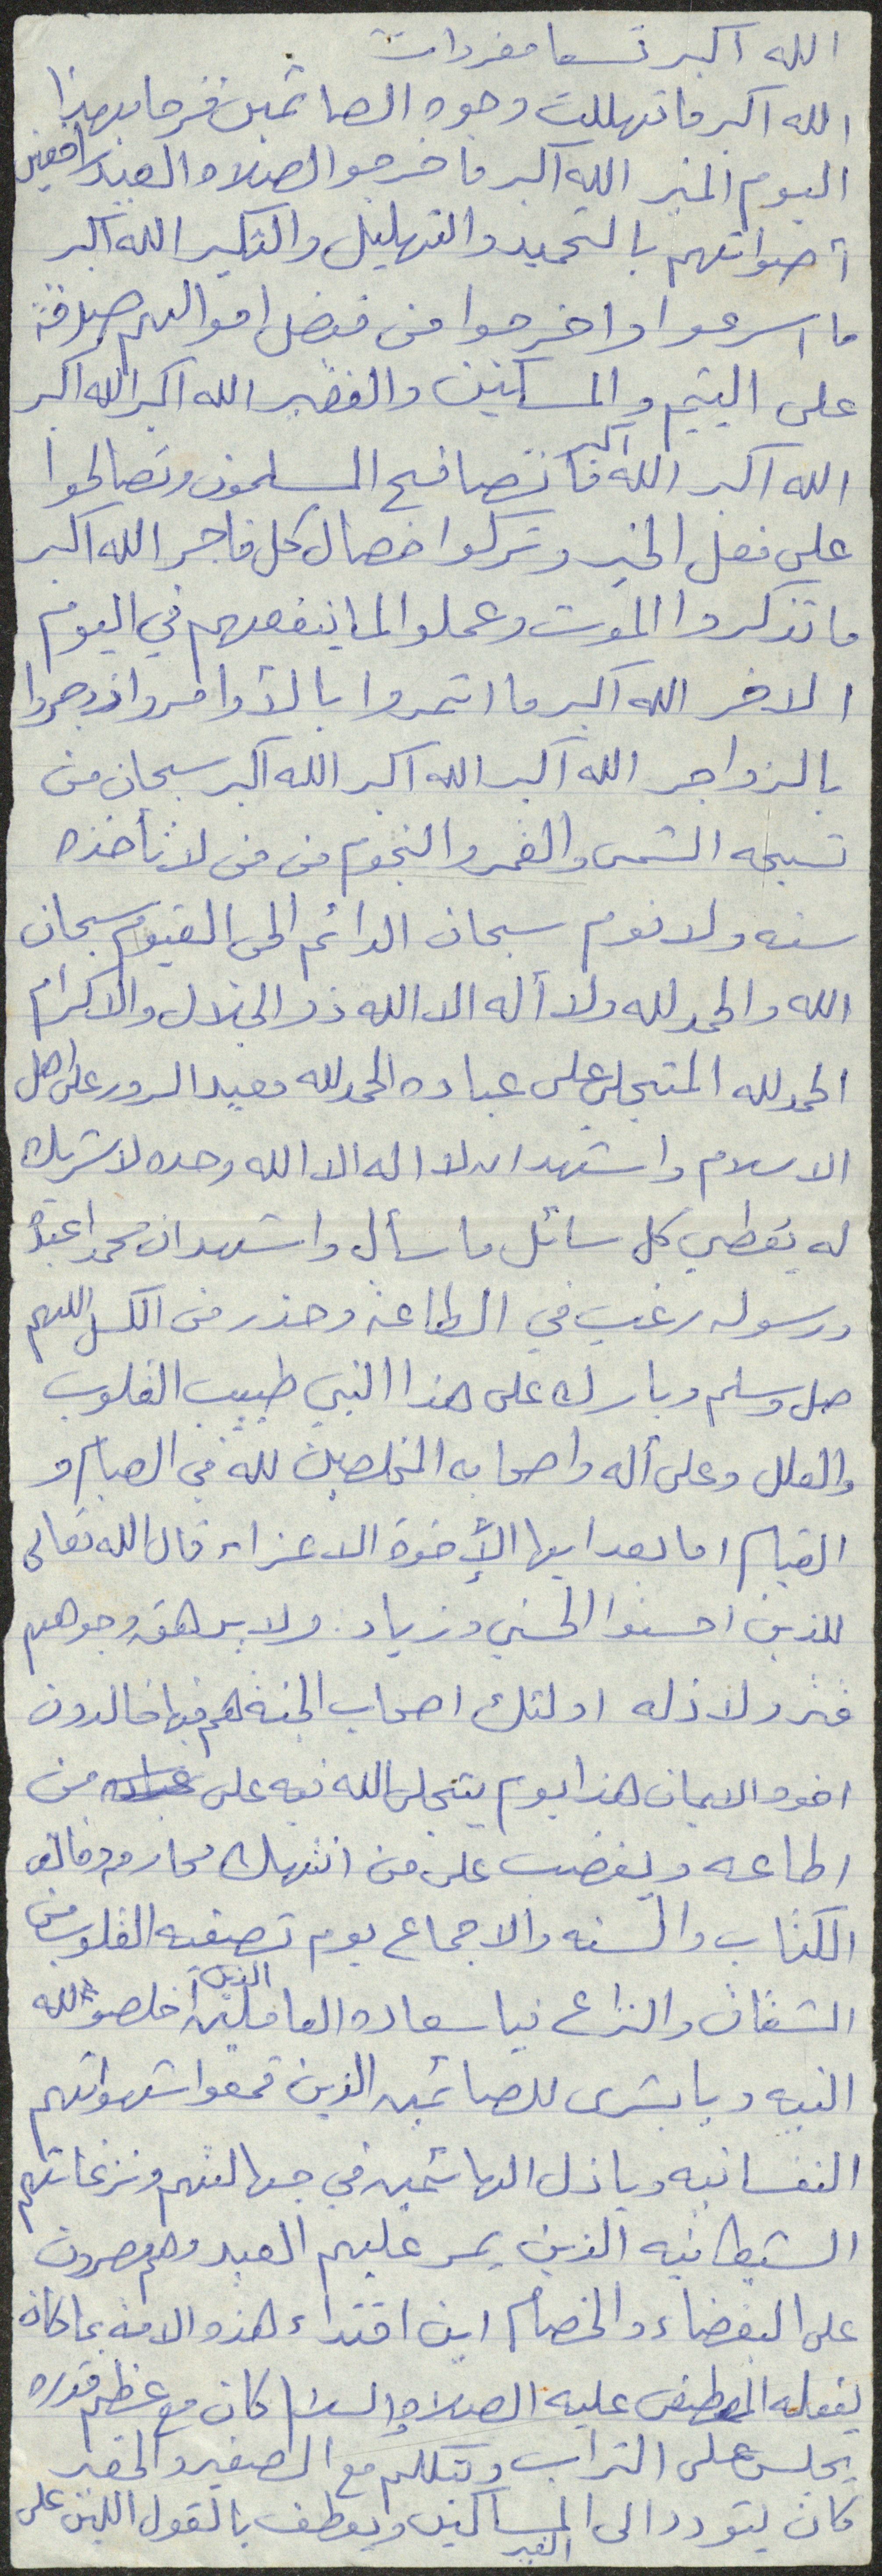 الله اكبر تسعا مفردات
الله اكبر ما تهللت وجوه الصائمين فرحا بهذا
اليوم المنير الله اكبر ما خرجو الصلاه العيد رافعين
أصواتهم بالتحميد والتهليل والتكبير الله اكبر
ما اسرعوا واخرجوا من فضل اموالهم صدقة
على اليتيم والمسكين والفقير الله اكبر الله اكبر
الله اكبر الله اكبر ما تصافح المسلمون وتصالحوا
على فعل الخير وتركوا خصال كل فاجر الله اكبر
ما تذكروا الموت وعملوا لما ينفعهم في اليوم
الاخر الله اكبر ما اتمروا بالأوامر وازدجروا
بالزواجر الله اكبر الله اكبر الله اكبر سبحان من
تسبحه الشمس والقمر والنجوم من من لا تأخذه
سنه ولا نوم سبحان الدائم الحي القيوم سبحان
الله والحمد لله ولا أله الا الله ذو الجلال والاكرام
الحمد لله المتجلي على عباده الحمد لله معيد السرور على اهل
الاسلام واشهد ان لا اله الا الله وحده لا شريك
له يعطي كل سائل ما سأل واشهد ان محمدا عبده
ورسوله رغب في الطاعة وحذر من الكسل اللهم
صل وسلم وبارك على هذا النبي طبيب القلوب
والعلل وعلى أله واصحابه المخلصين لله في الصيام و
القيام اما بعد ايها الأخوة الاعزاء قال الله تعالى
للذين احسنوا الحسنى وزياد. ولا يرهق وجوههم
قتر ولا ذله اولئك اصحاب الجنة هم فيها خالدون
اخوه الايمان هذا يوم يتجلى الله فيه على عباده من
اطاعه ويغضب على من انتهك محارمه وخالف
الكتاب والسنه والاجماع يوم تصفيه القلوب من
الشقاق والنزاع فيا سعاده العاملين الذين أخلصو لله
النيه ويا بشرى للصائمين الذين قمعوا شهواتهم
النفسانيه ويا ذل الهائمين في جهالتهم ونزغاتهم
الشيطانيه الذين يمر عليهم العيد وهم مصرون
على البغضاء والخصام اين اقتداء هذه الامة بما كان
يفعله المصطفى عليه الصلاه والسلام كان مع عظيم قدره
يجلس على التراب ويتكلم مع الصغير والحقير
كان يتودد الى المساكين ويعطف بالقول اللين على